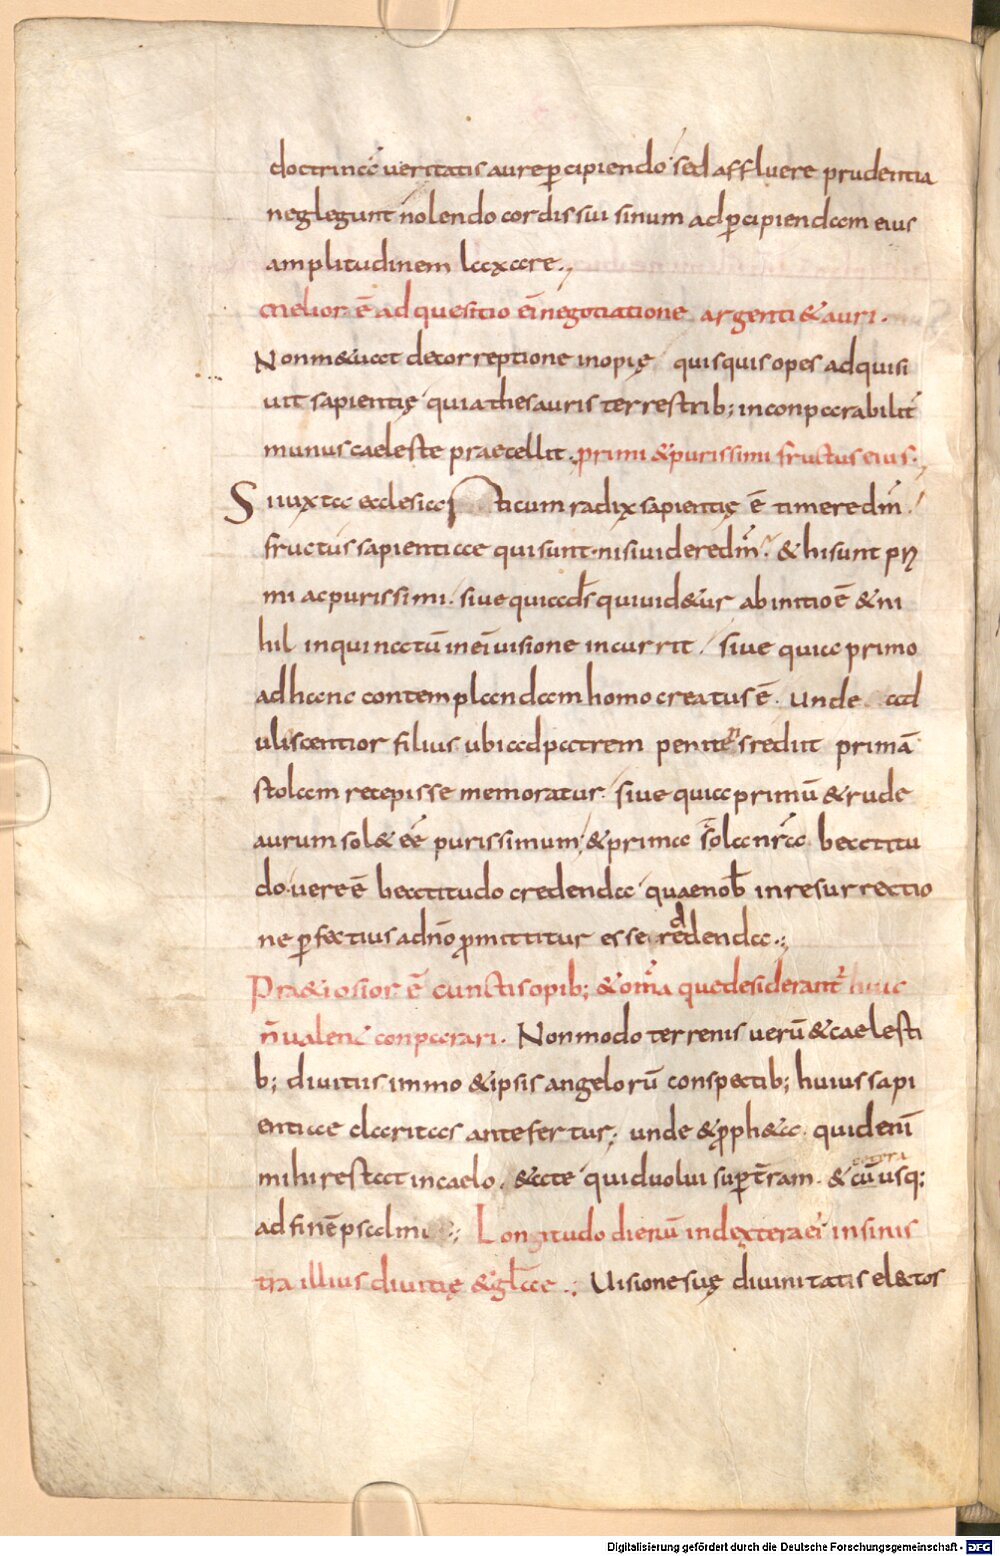 doctrinȩ ueritatis aure ꝑcipiendo sed affluere prudentia
neglegunt nolendo cordis sui sinum ad ꝑcipiendam eius
amplitudinem laxare.,
melior ē adquesitio ei negotiatione argenti & auri.
Non m&uat de correptione inopię quisquis opes adquisi
uit sapientię quia thesauris terrestrib; inconparabilit̄
munus caeleste praecellit. primi & purissimi fructus eius.,
Siuuxta ecclesiasticum radix sapientię ē timere dm̄.
fructus sapientiae qui sunt nisi uidere dm̄. & hi sunt pri
mi ac purissimi. siue quia d̄s qui uid&ur ab initio ē & ni
hil inquinatū in ei uisione incurrit. siue quia primo
ad hanc contemplandam homo creatus ē. Unde ad
uliscentior filius ubi ad patrem penitens rediit primā
stolam recepisse memoratur. siue quia primū & rude
aurum sol& eē purissimum, & prima stola nr̄a beatitu
do. uere ē beatitudo credenda quae nob̄ in resurrectio
ne ꝑfectius ad nō ꝓmittitur esse reddenda.;
Praetiosior ē cunctis opib; & om̄ia que desiderant̄ huic
n̄ ualent conparari. Non modo terrenis uerū & caelesti
b; diuitiis immo & ipsis angelorū conspectib; huius sapi
entiae claritas antefertur; unde & ꝓph&a. quid enī
mihi restat in caelo. & a te quid uolui suꝑ t̄ram. & cetera usq;
ad finē psalmi .; Longitudo dierū in dextera ei in sinis
tra illius diuitię & gl̄ae .; Uisione suę diuinitatis electos
Digitalisierung gefördert durch die Deutsche Forschungsgemeinschaft - DFG